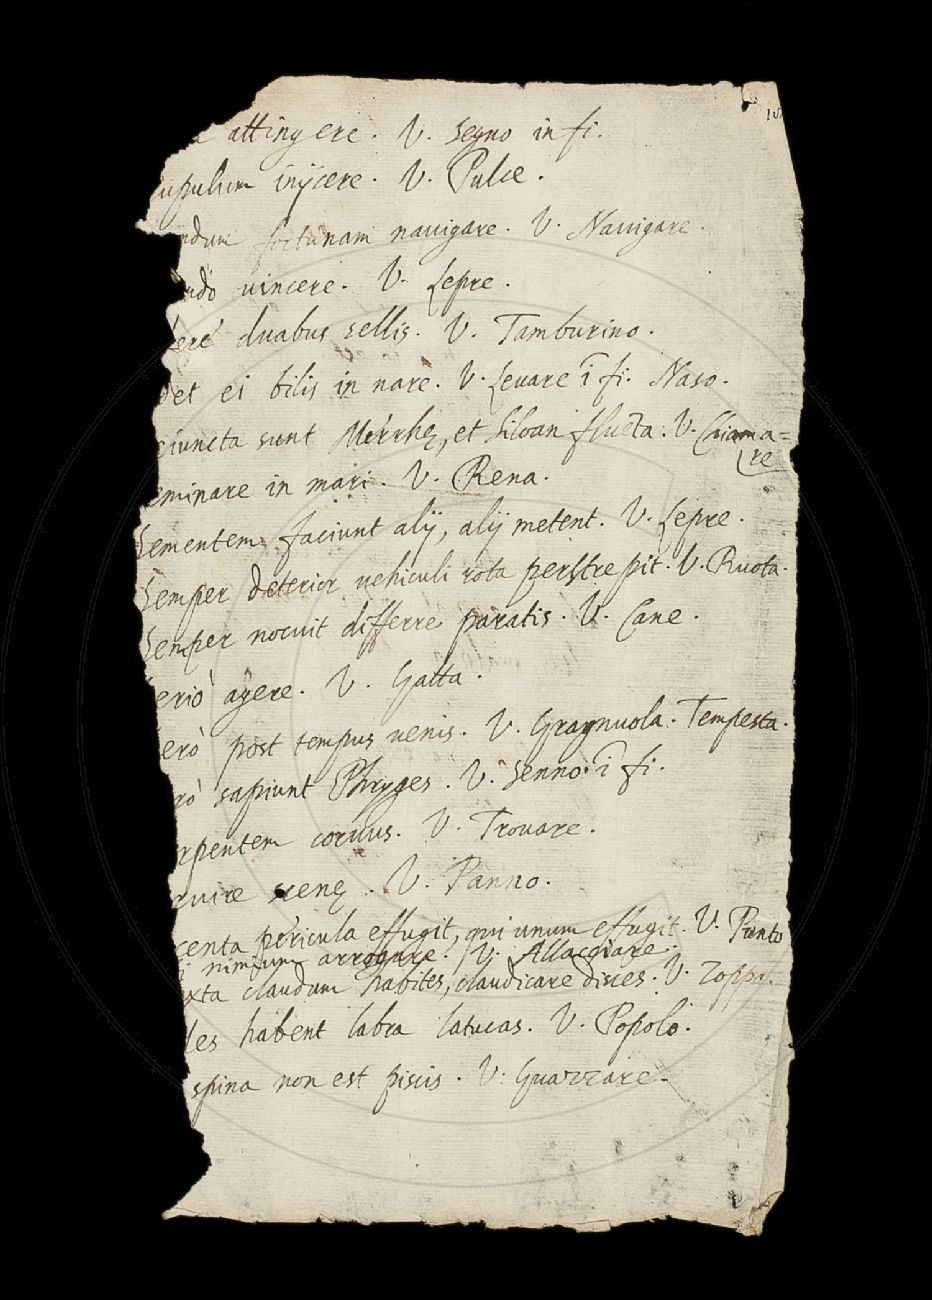 attingere. V. Segno in fi.
upulum inijcere. V. Pulce.
ndum fortunam nauigare. V. Nauigare.
ndò vincere. V. Lepre.
ere duabus sellis. V. Tamburino.
det ei bilis in nare. V. Leuare ī fi. Naso.
iuncta sunt Merrhę, et Siloan V. Chiama=
re
eminare in mari. V. Rena.
Sementem faciunt alij, alij metent. V. Lepre.
Semper deterior vehiculi rota perstrepit. V. Ruota.
Semper nocuit differre paratis. V. Cane.
eriò agere. V. Gatta.
erò post tempus uenis. V. Gragnuola. Tempesta.
rò sapiunt Phryges. V. Senno ī fi.
rpentem coruus. V. Trouare.
ruire scenę. V. Panno.
centa pericula effugit, qui unum effugit. V. Punto
i nimium arrogare. V. Allacciare.
xta claudum habites, claudicare disces. V. Zoppo.
les habent labra latucas. V. Popolo.
spina non est piscis. V. Guazzare.